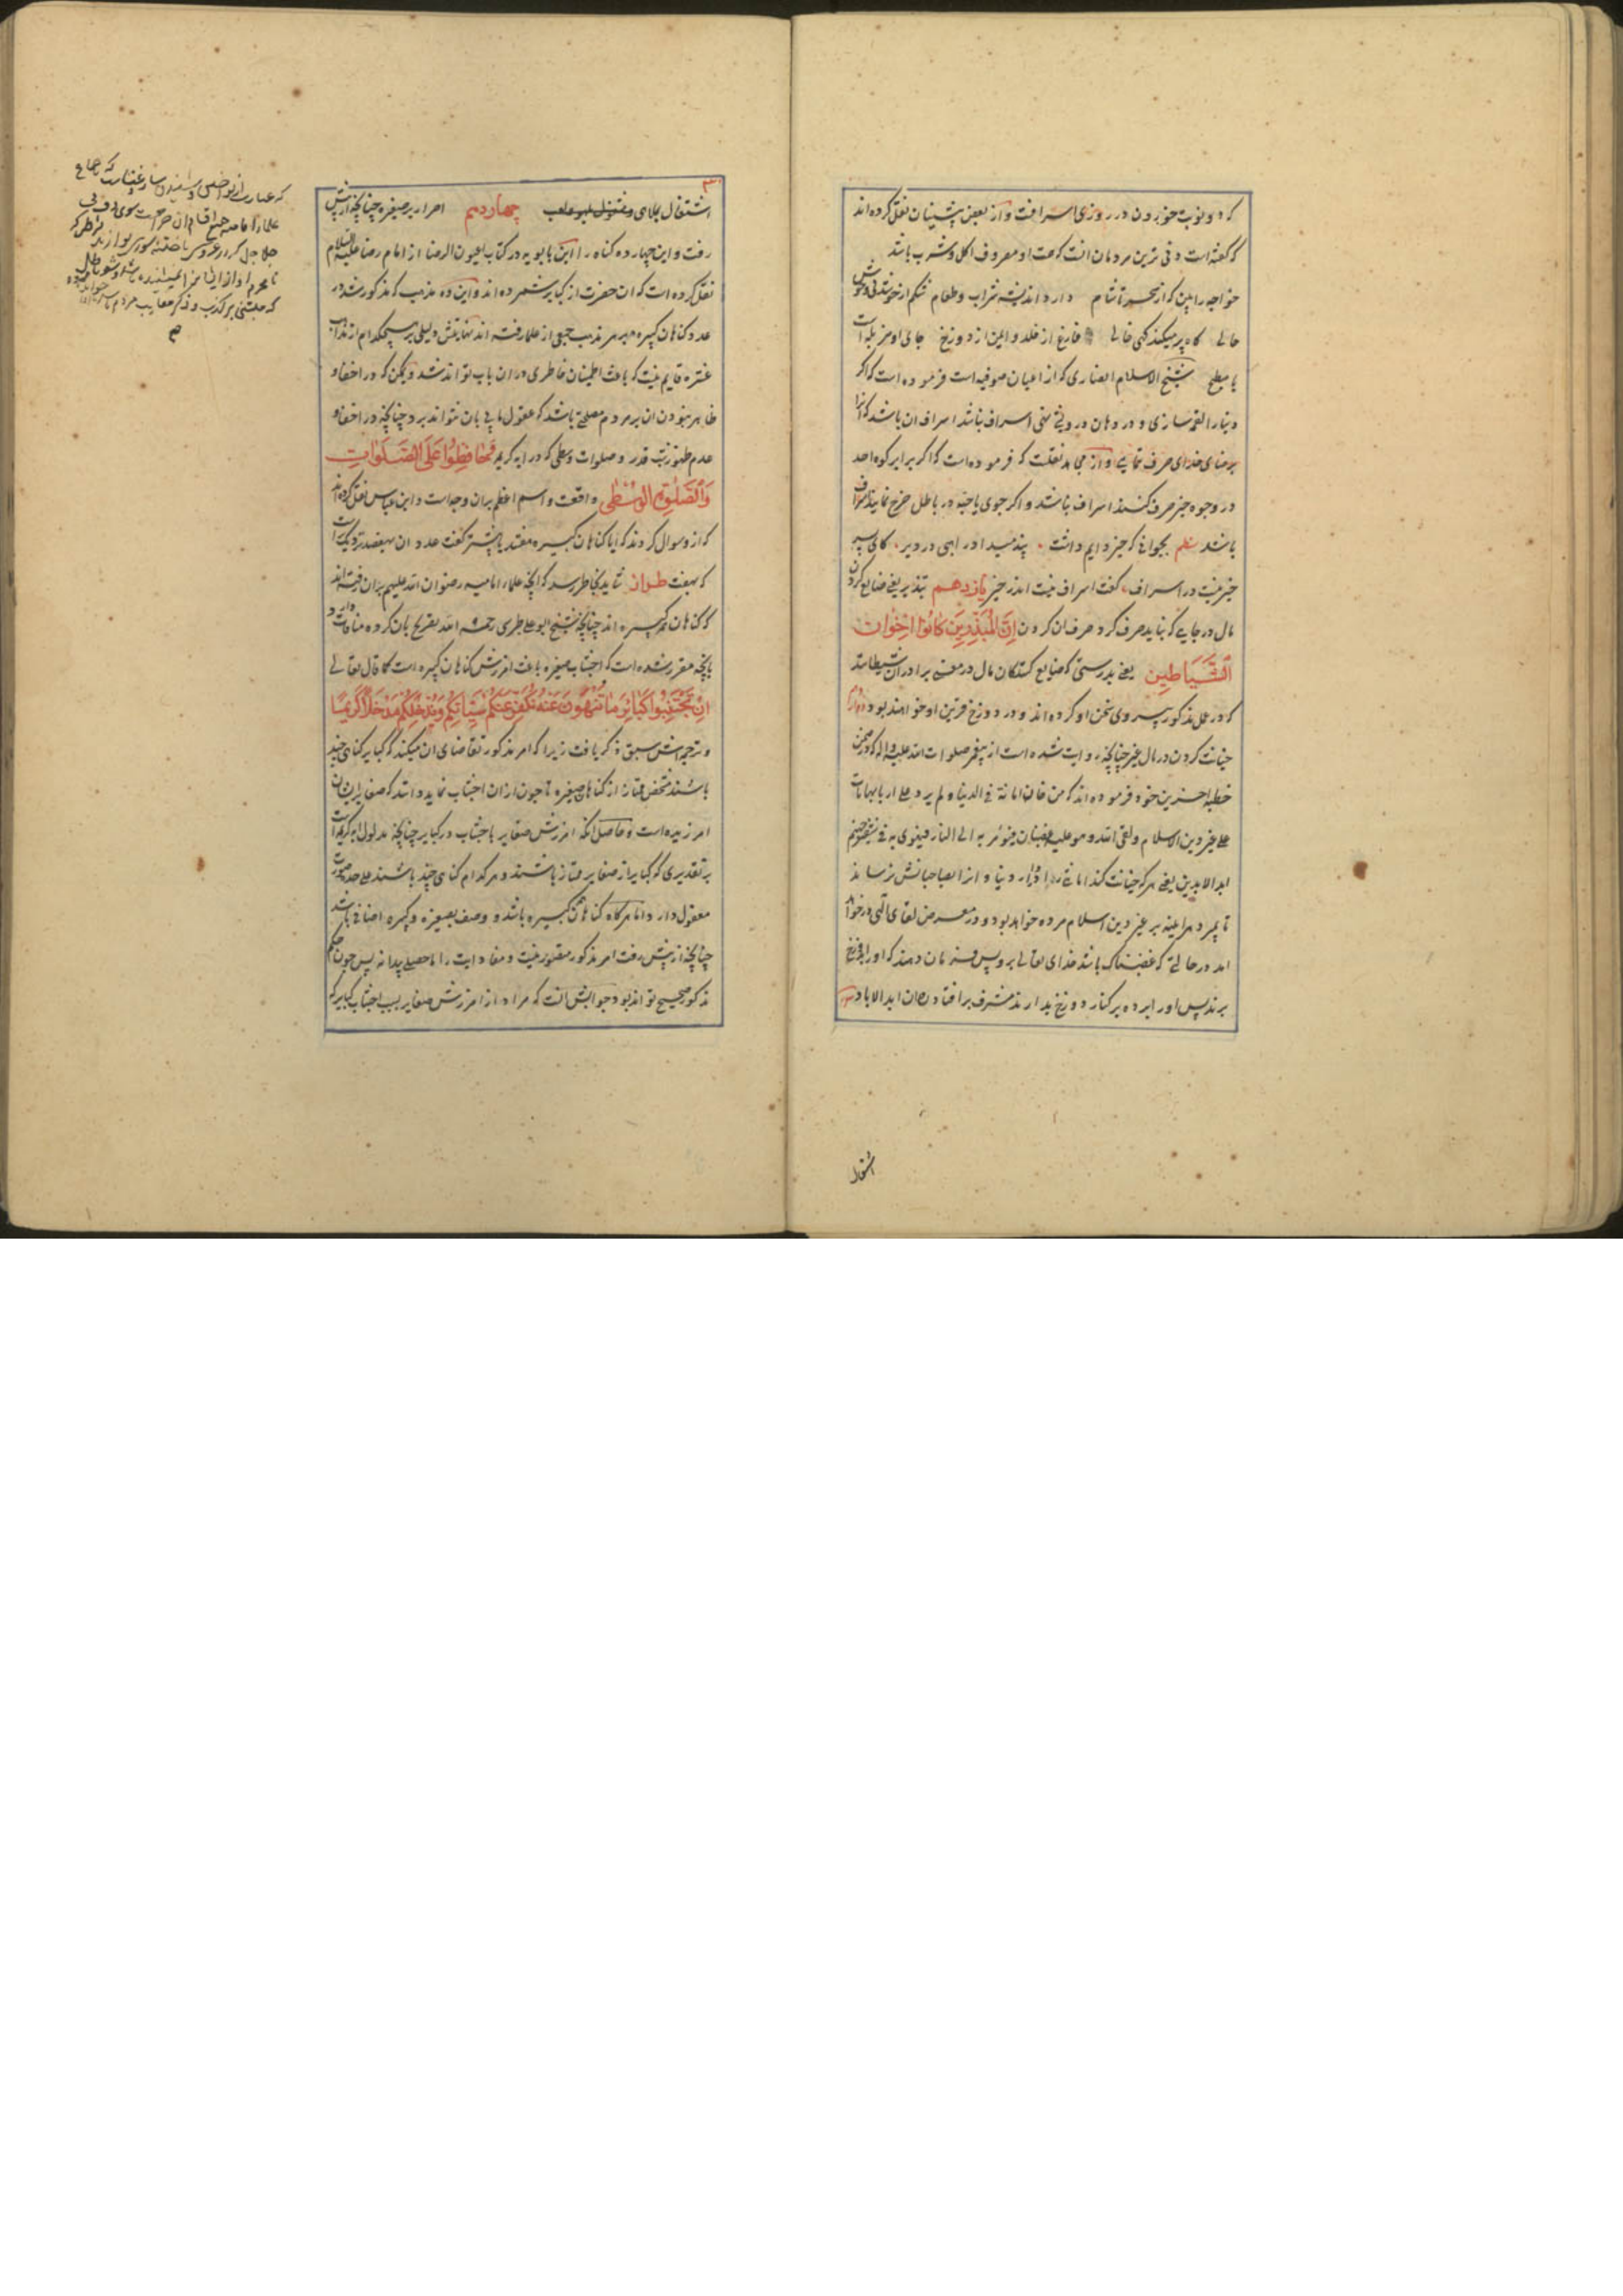 که دو نوبت خوردن در روزی اسرافت و از بعض پیشینیان نقل کرده اند
که گفته است دنی ترین مردمان انست که همت او مصروف اکل و شرب باشد
خواجه را بین که از سحر تا شام دارد اندیشه شراب و طعام شکم از خوشدلی و خوش
حالی کاه پر میکند کهی خالی فارغ از خلد و ایمن از دوزخ جای او مزبله است
یا مطبخ شیخ الاسلام انصاری که از اعیان صوفیه است فرموده است که اکر
دنیا را لقمه سازی و در دهان درویشی نهی اسراف نباشد اسراف ان باشد که نه
برضای خدای صرف نمایی و از مجاهد نقلست که فرموده است که اکر برابر کوه احد
در وجوه خیر صرف کنند اسراف نباشد و اکر جوی یا حبه در باطل خرج نمایند اسراف
باشد نظم بجوانی که خیر دایم داشت پند میداد راهبی در دیر کای پسر
خیر نیست در اسراف گفت اسراف نیست اندر خیر یازدهم تبذیر یعنی ضایع کردن
مال در جایی که نباید صرف کرد صرف ان کردن اِنَّ الْمُبَذِّرِینَ کَانُوا اِخْوَانَ
الشَّیَاطِینِ یعنی بدرستی که ضایع کنندکان مال در معنی برادران شیطانند
که در عمل مذکور پیروی سخن او کرده اند و در دوزخ قرین او خواهند بود دوازدهم
خیانت کردن در مال غیر چنانچه روایت شده است از پیغمبر صلوات الله علیه و اله که در ضمن
خطبه اخرین خود فرموده اند که من خان امانة فی الدنیا و لم یرد علی اربابها مات
علی غیر دین الاسلام و لقی الله و هو علیه غضبان فیؤمر به الی النار فیهوی به فی شفیر جهنم
ابد الابدین یعنی هر که خیانت کند امانتی را در دار دنیا و انرا بصاحبانش نرساند
تا بمیرد هراینه بر غیر دین اسلام مرده خواهد بود و در معرض لقای الهی در خواهد
امد در حالتی که غضبناک باشد خدای تعالی برو پس فرمان دهند که او را بدوزخ
برند پس او را برده بر کنار دوزخ بدارند مشرف بر افتادن ان ابد الاباد
اشتغال
اشتغال بملاهی چهاردهم اصرار بر صغیره چنانچه از پیش
رفت و این چهارده کناه را ابن بابویه در کتاب عیون الرضا از امام رضا علیه السلام
نقل کرده است که ان حضرت از کبایر شمرده اند و این ده مذهب که مذکور شد در
عدد کناهان کبیره بهر مذهب جمعی از علما رفته اند نهایتش دلیلی بر هیچکدام از مذاهب
عشره قایم نیست که باعث اطمینان خاطری در ان باب تواند شد و یمکن که در اخفا و
ظاهر نبودن ان بر مردم مصلحتی باشد که عقول ما پی بان نتواند برد چنانچه در اخفا و
عدم ظهور شب قدر و صلوات وسطی که در ایه کریمه فَحَافِظُوا عَلَی الصَّلَوَاتِ
وَالصَّلٰوةِ الْوُسْطٰی واقعست و اسم اعظم بران وجه است و ابن عباس نقل کرده اند
که از و سوال کردند که ایا کناهان کبیره هفتند یا بیشتر گفت عدد ان بهفصد نزدیکتر است
که بهفت طراز شاید بخاطر رسد که انچه علماء امامیه رضوان الله علیهم بران رفته اند
که کناهان همه کبیره اند چنانچه شیخ ابو علی طبرسی رحمه الله تصریح بان کرده منافات دارد
بانچه مقرر شده است که اجتناب صغیره باعث امرزش کناهان کبیره است کما قال تعالی
اِنْ تَجْتَنِبُوا کَبَائِرَ مَا تُنْهَوْنَ عَنْهُ نُکَفِّرْ عَنْکُمْ سَیِّئَاتِکُمْ وَنُدْخِلْکُمْ مُدْخَلًا کَرِیمًا
و ترجمه اش سبق ذکر یافت زیرا که امر مذکور تقاضای ان میکند که کبایر کناهی چند
باشند مشخص ممتاز از کناهان صغیره تا چون ازان اجتناب نماید داند که صغایر ایشان
امرزیده است و حاصل انکه امرزش صغایر باجتناب در کبایر چنانچه مدلول ایه کریمه است
بر تقدیری که کبایر از صغایر ممتاز باشند و هر کدام کناهی چند باشند علی حده صورت
معقول دارد اما هرکاه کناهان همه کبیره باشد و وصف بصغیره و کبیره اضافی باشد
چنانچه از پیش رفت امر مذکور متصور نیست و مفاد ایت را ما حصلی پیدا نه پس چون حکم
مذکور صحیح تواند بود جوابش انست که مراد از امرزش صغایر بسبب اجتناب کبایر که